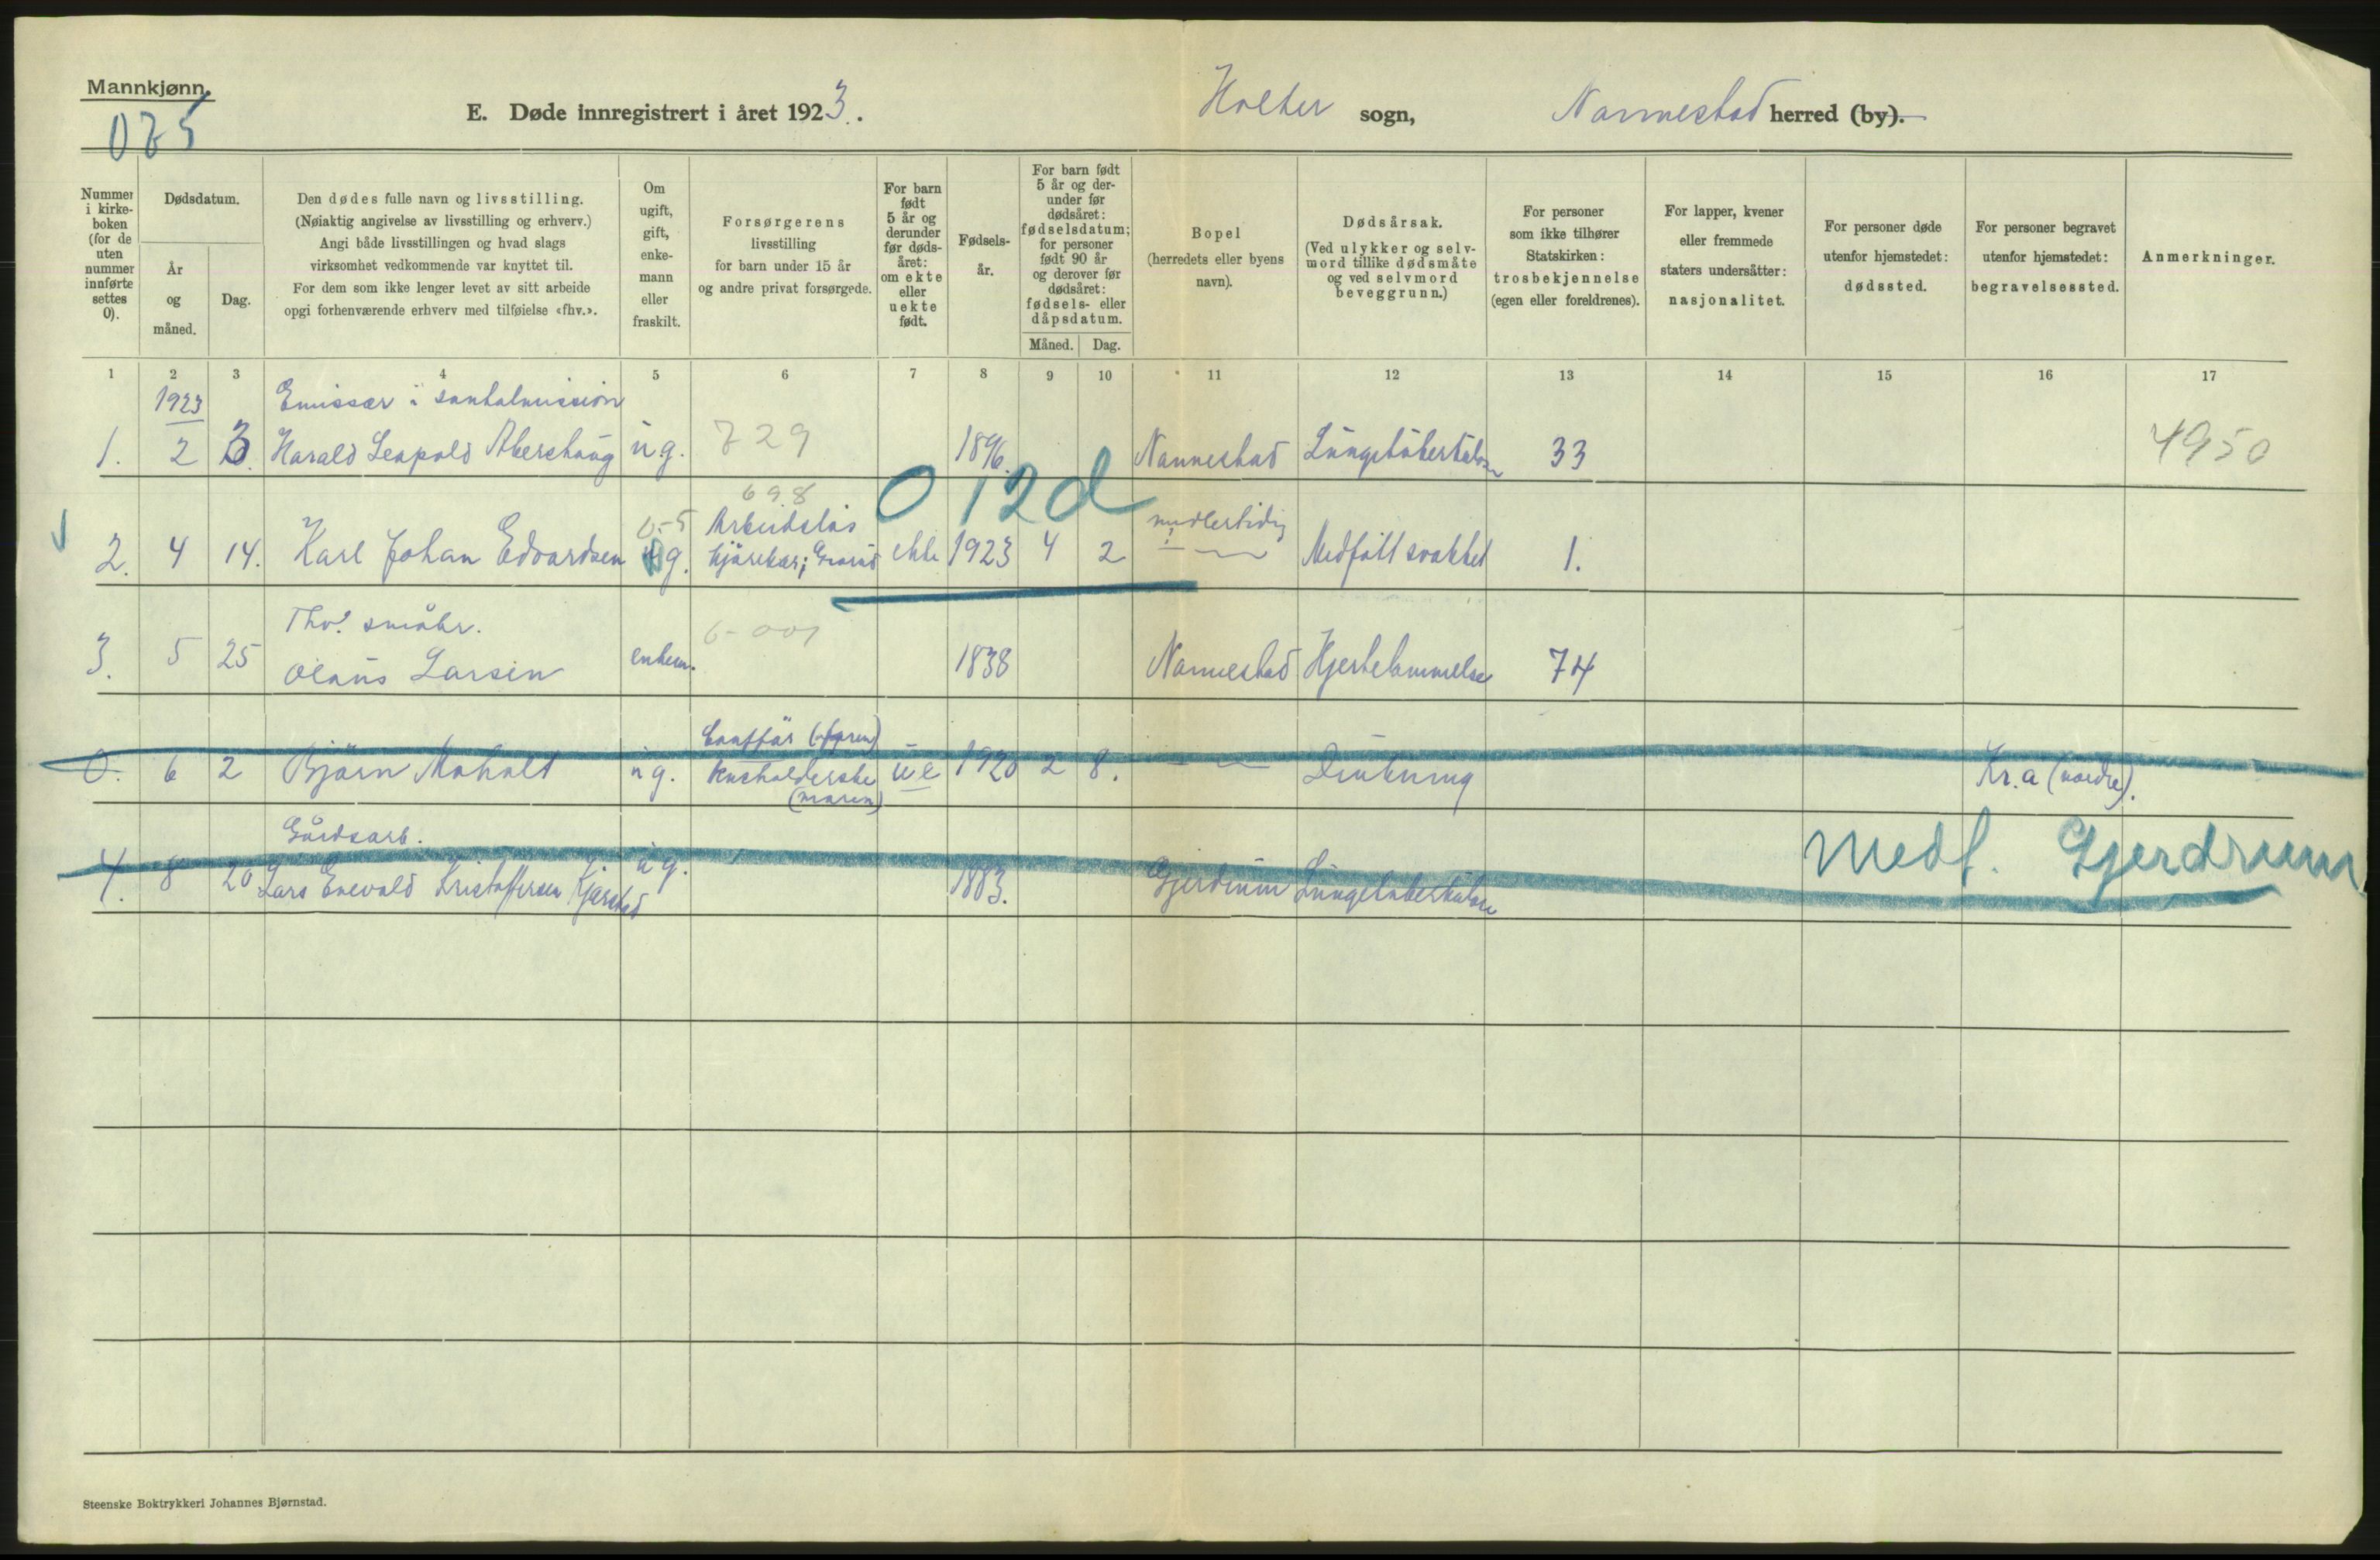 Mannkjønn.
025
E. Døde innregistrert i året 1923.
Holter sogn,
Nannestad herred (by).
Nummer i kirkeboken (for de uten nummer innførte settes 0).
Dødsdatum.
År og måned.
Dag.
Den dødes fulle navn og livsstilling.
(Nøiaktig angivelse av livsstilling og erhverv.)
Angi både livsstillingen og hvad slags
virksomhet vedkommende var knyttet til.
For dem som ikke lenger levet av sitt arbeide
opgi forhenværende erhverv med tilføielse «fhv.».
Om ugift, gift, enkemann eller fraskilt.
Forsørgerens
livsstilling
for barn under 15 år
og andre privat forsørgede.
For barn født 5 år og derunder før dødsåret: om ekte eller uekte født.
Fødselsår.
For barn født 5 år og derunder før dødsåret: fødselsdatum; for personer født 90 år og derover før dødsåret: fødsels- eller dåpsdatum.
Måned. Dag.
Bopel
(herredets eller byens
navn).
Dødsårsak.
(Ved ulykker og selvmord tillike dødsmåte og ved selvmord beveggrunn.)
For personer
som ikke tilhører
Statskirken:
trosbekjennelse
(egen eller foreldrenes).
For lapper, kvener
eller fremmede
staters undersåtter:
nasjonalitet.
For personer døde
utenfor hjemstedet:
dødssted.
For personer begravet
utenfor hjemstedet:
begravelsessted.
Anmerkninger.
1 2 3 4 5 6 7 8 9 10 11 12 13 14 15 16 17
1923 Emissær i santalmission
1. 2 3. Harald Leopold Abershaug ug. 729 1896. Nannestad Lungetuberkulose 33 4950
012d
698
Arbeidsløs midlertidig
2. 4 14. Karl Johan Edvardsen ug. kjørekar; ekte 1923 4 2 Medfött svakhet 1.
Fhv. småbr. 6-001
3. 5 25 Olaus Larsen enkem. 1838 Nannestad Hjertelammelse 74
0. 6 2 Björn Moholt ug. husholderske ue 1920 2 8. Drukning Kr.a (nordre).
Gårdsarb.
4. 8 20 Lars Enevald Kristoffersen Kjærstad ug. 1883. Gjerdrum Lungetuberkulose
Medf. Gjerdrum
Steenske Boktrykkeri Johannes Bjørnstad.